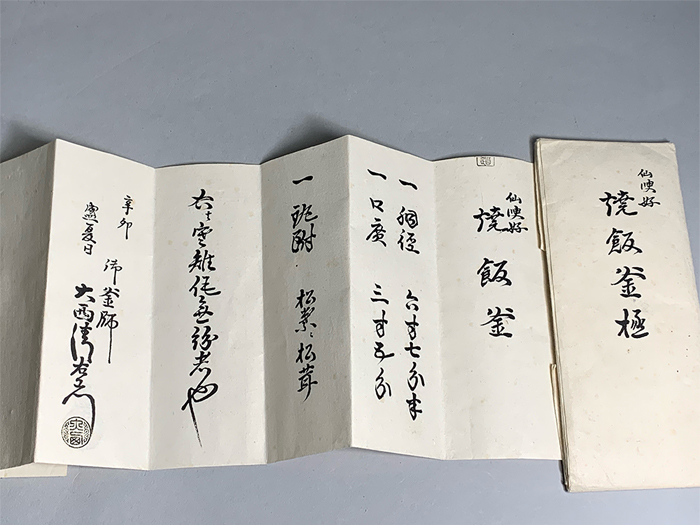 仙叟好
燒飯釜極
仙叟好
燒飯釜
一 胴徑 六寸七分半
一 口廣 三寸五分
一 鐶附 松葉ニ松茸
右ハ寒雉作無紛者也
辛卯
盛夏日
御釜師
大西清右衛門